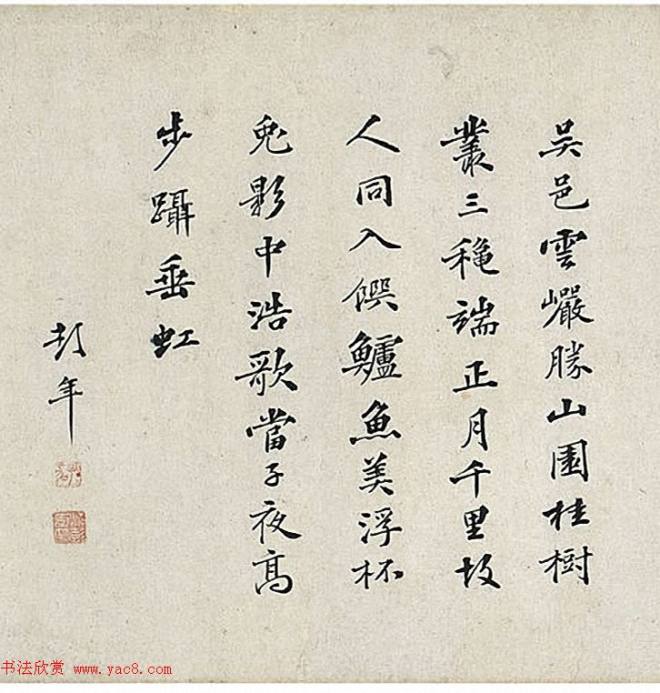 吴邑雲巖勝山園桂樹
叢三種端正月千里故
人同入饌鱸魚美浮杯
兔影中浩歌當子夜高
步躡垂虹
彭年
书法欣赏 www.yac8.com